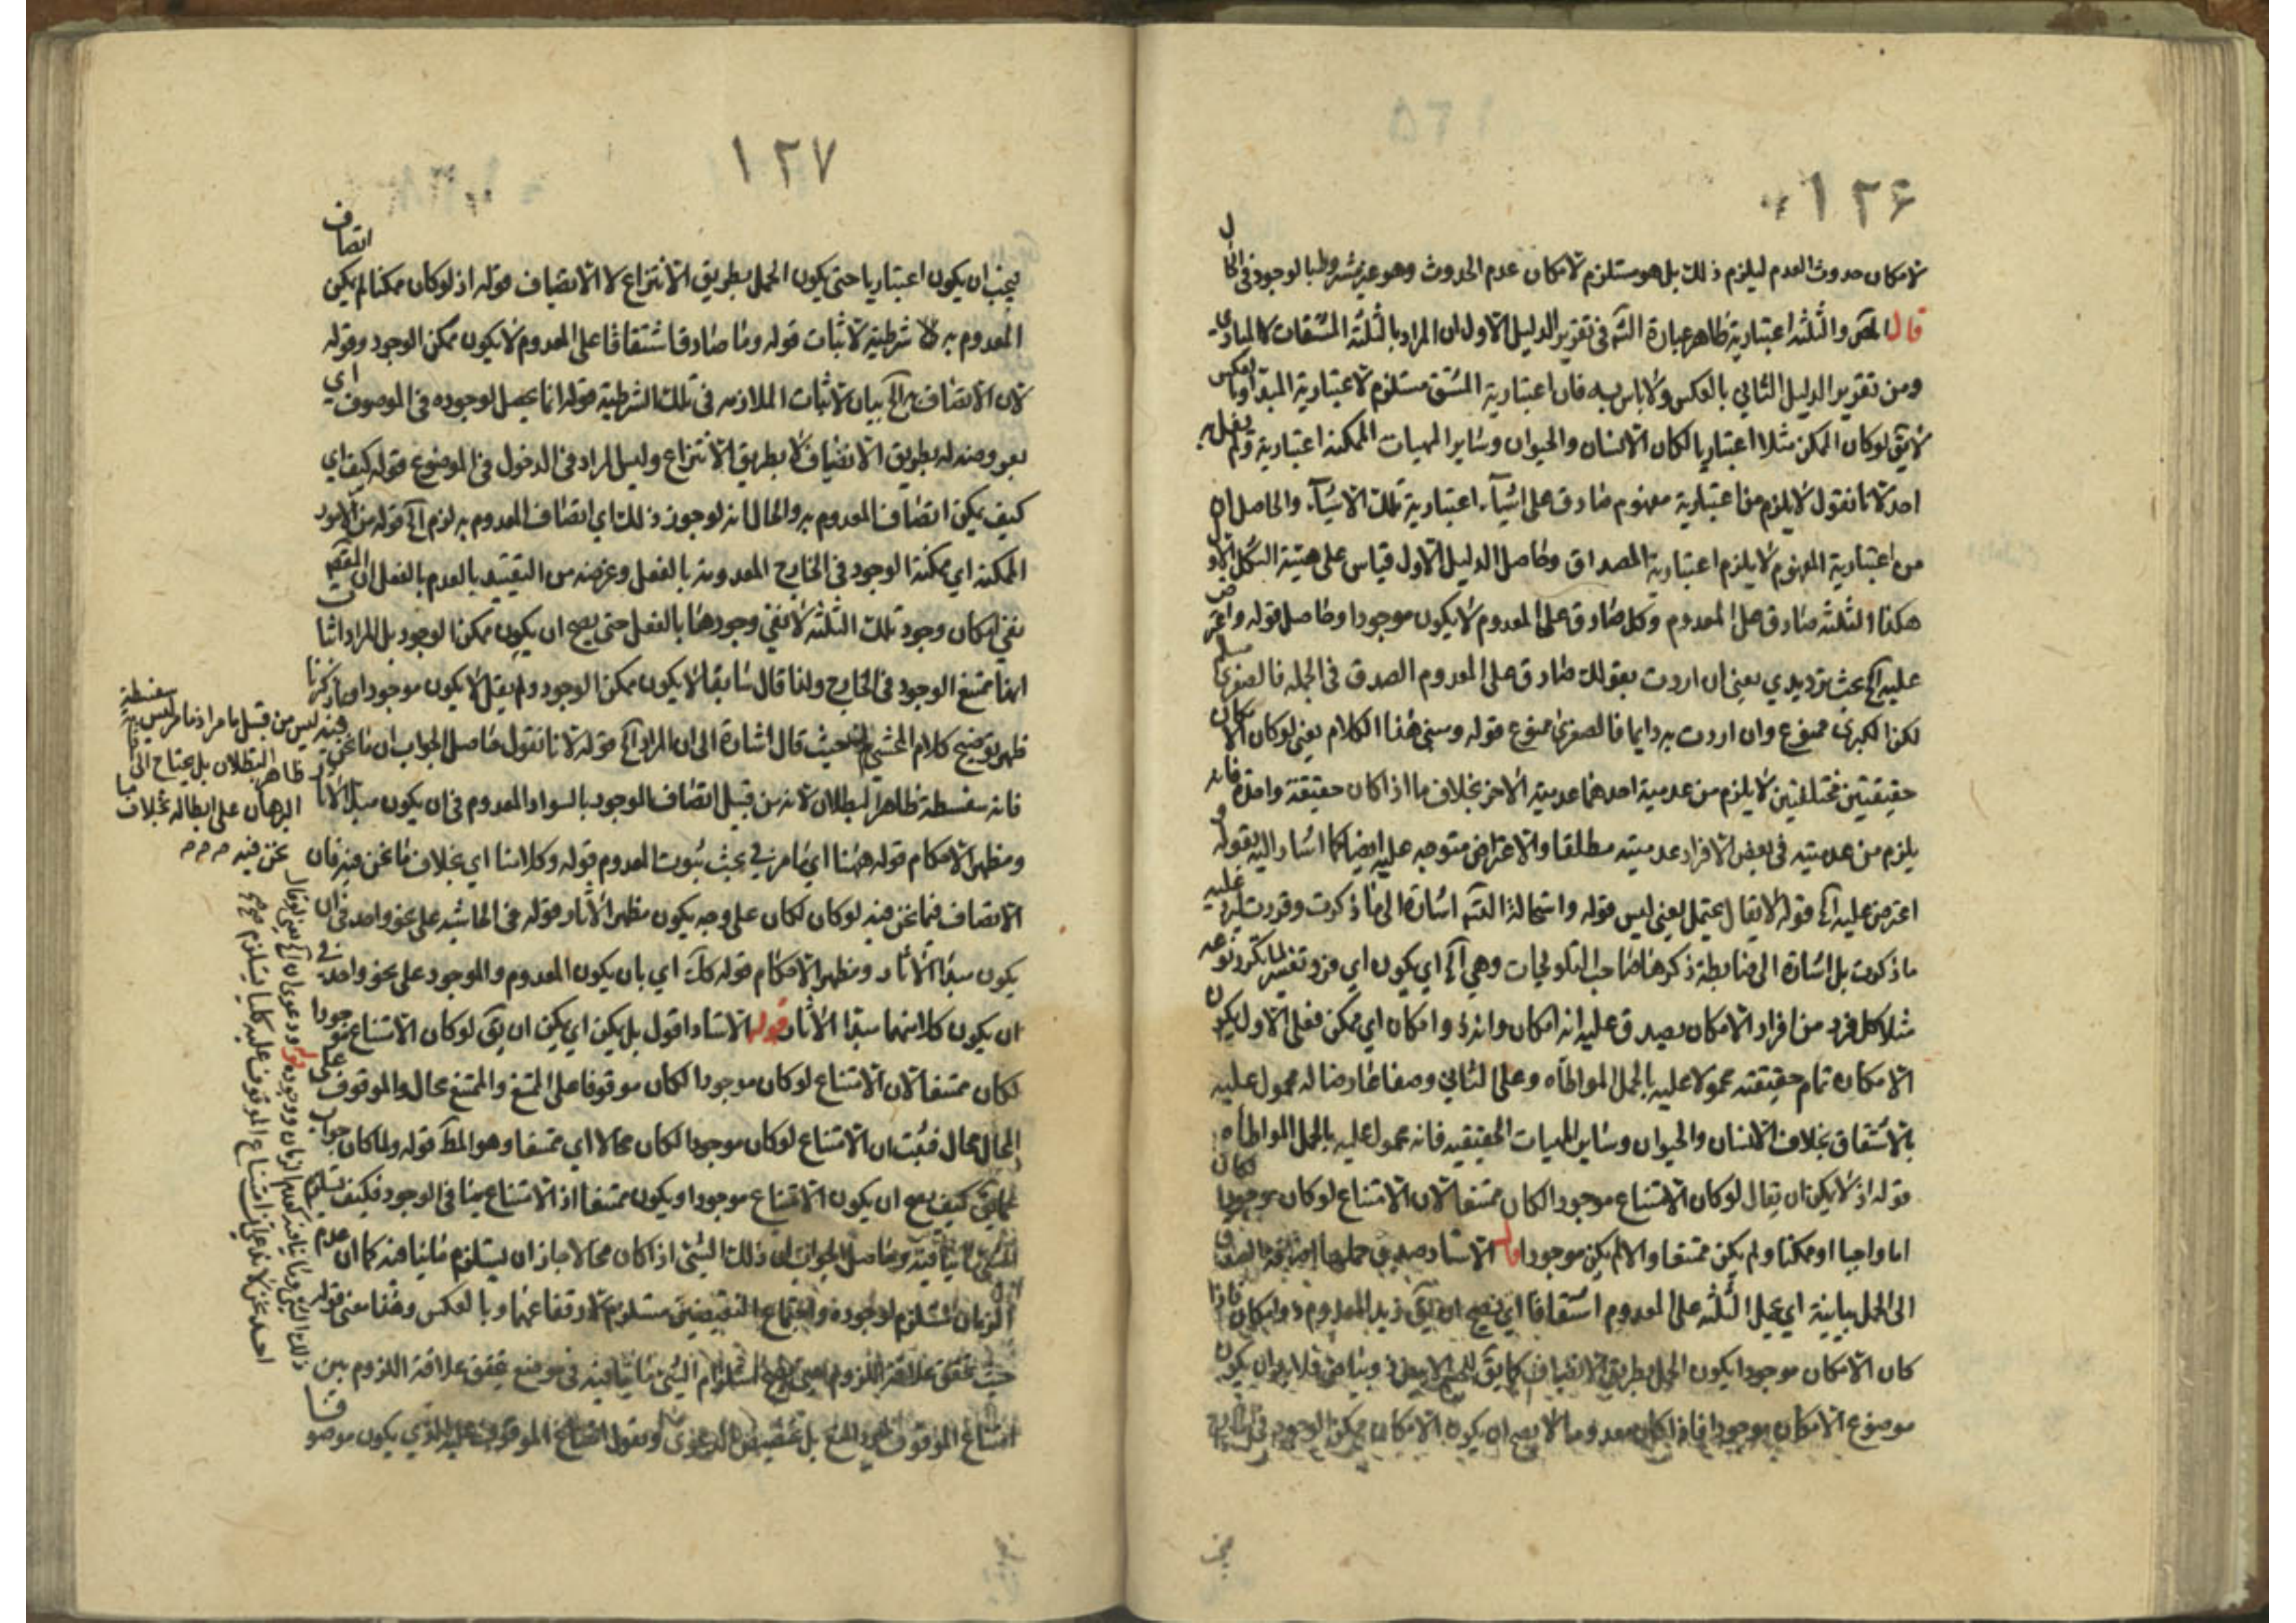 ١٢۶
لامكان حدوث العدم ليلزم ذلك بل هو مستلزم لامكان عدم الحدوث وهو غير مشروط بالوجود فى الحال
قال المص والثلثة اعتبارية ظاهر عبارة الش فى تقرير الدليل الاول ان المراد بالثلثة المشتقات لا المبادى
ومن تقرير الدليل الثاني بالعكس ولا باس به فان اعتبارية المشتق مستلزم لاعتبارية المبدأ وبالعكس
لا يق لو كان الممكن مثلا اعتباريا لكان الانسان والحيوان وساير المهيات الممكنة اعتبارية ولم يقل به
احد لانا نقول لا يلزم من اعتبارية مفهوم صادق على اشيآء اعتبارية تلك الاشيآء والحاصل ان
من اعتبارية المفهوم لا يلزم اعتبارية المصداق وحاصل الدليل الاول قياس على هيئة الشكل الاول
هكذا الثلثة صادق على المعدوم وكل صادق على المعدوم لا يكون موجودا وحاصل قوله واعترض
عليه آلخ بحث ترديدي يعني ان اردت بقولك صادق على المعدوم الصدق فى الجملة فالصغرى مسلم
لكن الكبرى ممنوع وان اردت به دايما فالصغرى ممنوع قوله ومبنى هذا الكلام يعني لو كان الامكان
حقيقتين مختلفتين لا يلزم من عدمية احدهما عدمية الاخر بخلاف ما اذا كان حقيقة واحدة فانه
يلزم من عدميته فى بعض الافراد عدميته مطلقا والاعتراض متوجه عليه ايضا كما اشار اليه بقوله و
اعترض عليه آلخ قوله لا يقال يحتمل يعني ليس قوله واستحالة الش اشارة الى ما ذكرت وقررت ليرد عليه
ما ذكرت بل اشارة الى ضابطة ذكرها صاحب التلويحات وهي آلخ اي يكون اي فرد وتفسير لما يتكرر نوعه
مثلا كل فرد من افراد الامكان يصدق عليه انه امكان وانه ذو امكان اي ممكن فعلى الاول يكون
الامكان تمام حقيقته محمولا عليه بالحمل المواطاه وعلى الثاني وصفا عارضا له محمول عليه
بالاشتقاق بخلاف الانسان والحيوان وساير المهيات الحقيقيه فانه محمول عليه بالحمل المواطاه
قوله اذ لا يمكن ان يقال لو كان الامتناع موجودا لكان ممتنعا لان الامتناع لو كان موجودا لكان
اما واجبا او ممكنا ولم يكن ممتنعا والا لم يكن موجودا قال الاستاد صدق حملها
الى الحمل بيانية اي يحمل الثلثه على المعدوم اشتقاقا اي يصح ان يق زيد المعدوم ذو امكان فاذا
كان الامكان موجودا يكون الحمل بطريق الانضياف كما يق للجسم الابيض ذو بياض فلا بد ان يكون
موضوع الامكان موجودا فاذا كان معدوما لا يصح ان يكون الامكان ممكن الوجود فى الخارج
١٢٧
يجب ان يكون اعتباريا حتى يكون الحمل بطريق الانتزاع لا الانضياف قوله اذ لو كان ممكنا لم يكن اتصاف
المعدوم به لا شرطية لاثبات قوله وما صادق اشتقاقا على المعدوم لا يكون ممكن الوجود وقوله
لان الاتصاف به آلخ بيان لاثبات الملازمه فى تلك الشرطية قوله انما يحصل لوجوده فى الموصوف اي
بعروضه له بطريق الانضياف لا بطريق الانتزاع وليس المراد فى الدخول فى الموضوع قوله كيف اي
كيف يمكن اتصاف المعدوم به والحال انه لو جوز ذلك اي اتصاف المعدوم به لزم آلخ قوله من الامور
الممكنة اي ممكنة الوجود فى الخارج المعدومة بالفعل وغرضه من التقييد بالعدم بالفعل
نفي امكان وجود تلك الثلثه لا نفي وجودها بالفعل حتى يصح ان يكون ممكن الوجود بل المراد
انها ممتنع الوجود فى الخارج ولذا قال سابقا لا يكون ممكن الوجود ولم يقل لا يكون موجودا وما ذكرنا
ظهر توضيح كلام المحشي حيث قال اشارة الى ان المراد آلخ قوله لانا نقول حاصل الجواب ان ما نحن فيه
فانه سفسطة ظاهر البطلان لانه من قبيل اتصاف الموجود بالسواد المعدوم فى ان يكون مبدأ الاثار
ومظهر الاحكام قوله ههنا اي ما مر في بحث ثبوت المعدوم قوله وكلامنا اي بخلاف ما نحن فيه فان
الاتصاف فيما نحن فيه لو كان لكان على وجه يكون مظهر الاثار وقوله فى الحاشيه على نحو واحد فى ان
يكون مبدأ الاثار ومظهر الاحكام قوله كك اي بان يكون المعدوم والموجود على نحو واحد في
ان يكون كلا منهما مبدأ الاثار قوله الاستاد اقول بل يمكن اي يمكن ان يق لو كان الامتناع موجودا
لكان ممتنعا لان الامتناع لو كان موجودا لكان موقوفا على الممتنع والممتنع محال والموقوف على
المحال محال فثبت ان الامتناع لو كان موجودا لكان محالا اي ممتنعا وهو المط قوله ولما كان جواب
عما يق كيف يصح ان يكون الامتناع موجودا ويكون ممتنعا اذ الامتناع ينافى الوجود فكيف يستلزم
الشئ ما ينافيه وحاصل الجواب ان ذلك الشئ اذا كان محالا جاز ان يستلزم ما ينافيه كما ان عدم
الزمان المستلزم لوجوده واجتماع النقيضين مستلزم لارتفاعهما وبالعكس وهذا معنى قوله
حيث تحقق علاقة اللزوم استلزام الشئ ما ينافيه فى موضع تحقق علاقة اللزوم بين
امتناع الموقوف الدعوى ونقول امتناع الموقوف عليه الذي يكون موصو
فيه ليس من قبيل ما مر اذ ما مر ليس سفسطة
ظاهر البطلان بل يحتاج الى
البرهان على ابطاله بخلاف ما
نحن فيه م م م